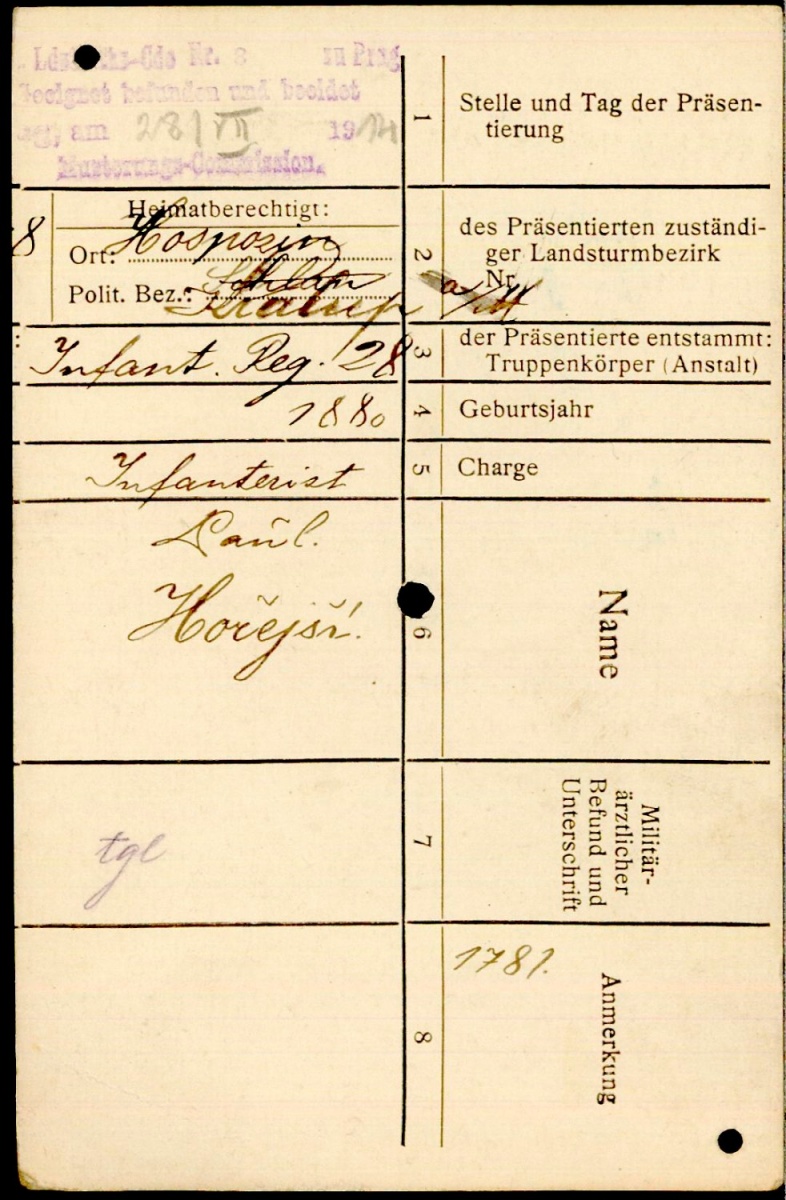 Nr. 8 zu Prag
geeignet befunden und beeidet
am 28/VII 1914
Musterungs-Commission.
1
Stelle und Tag der Präsen-
tierung
8
Heimatberechtigt:
Ort: Hospozin
Polit. Bez.: Schlan
Kralup
2
des Präsentierten zuständi-
ger Landsturmbezirk
Nr.
Infant. Reg. 28
3
der Präsentierte entstammt:
Truppenkörper (Anstalt)
1880
4
Geburtsjahr
Infanterist
5
Charge
Paul.
Hořejší.
6
Name
tgl
7
Militär-
ärztlicher
Befund und
Unterschrift
1781.
8
Anmerkung